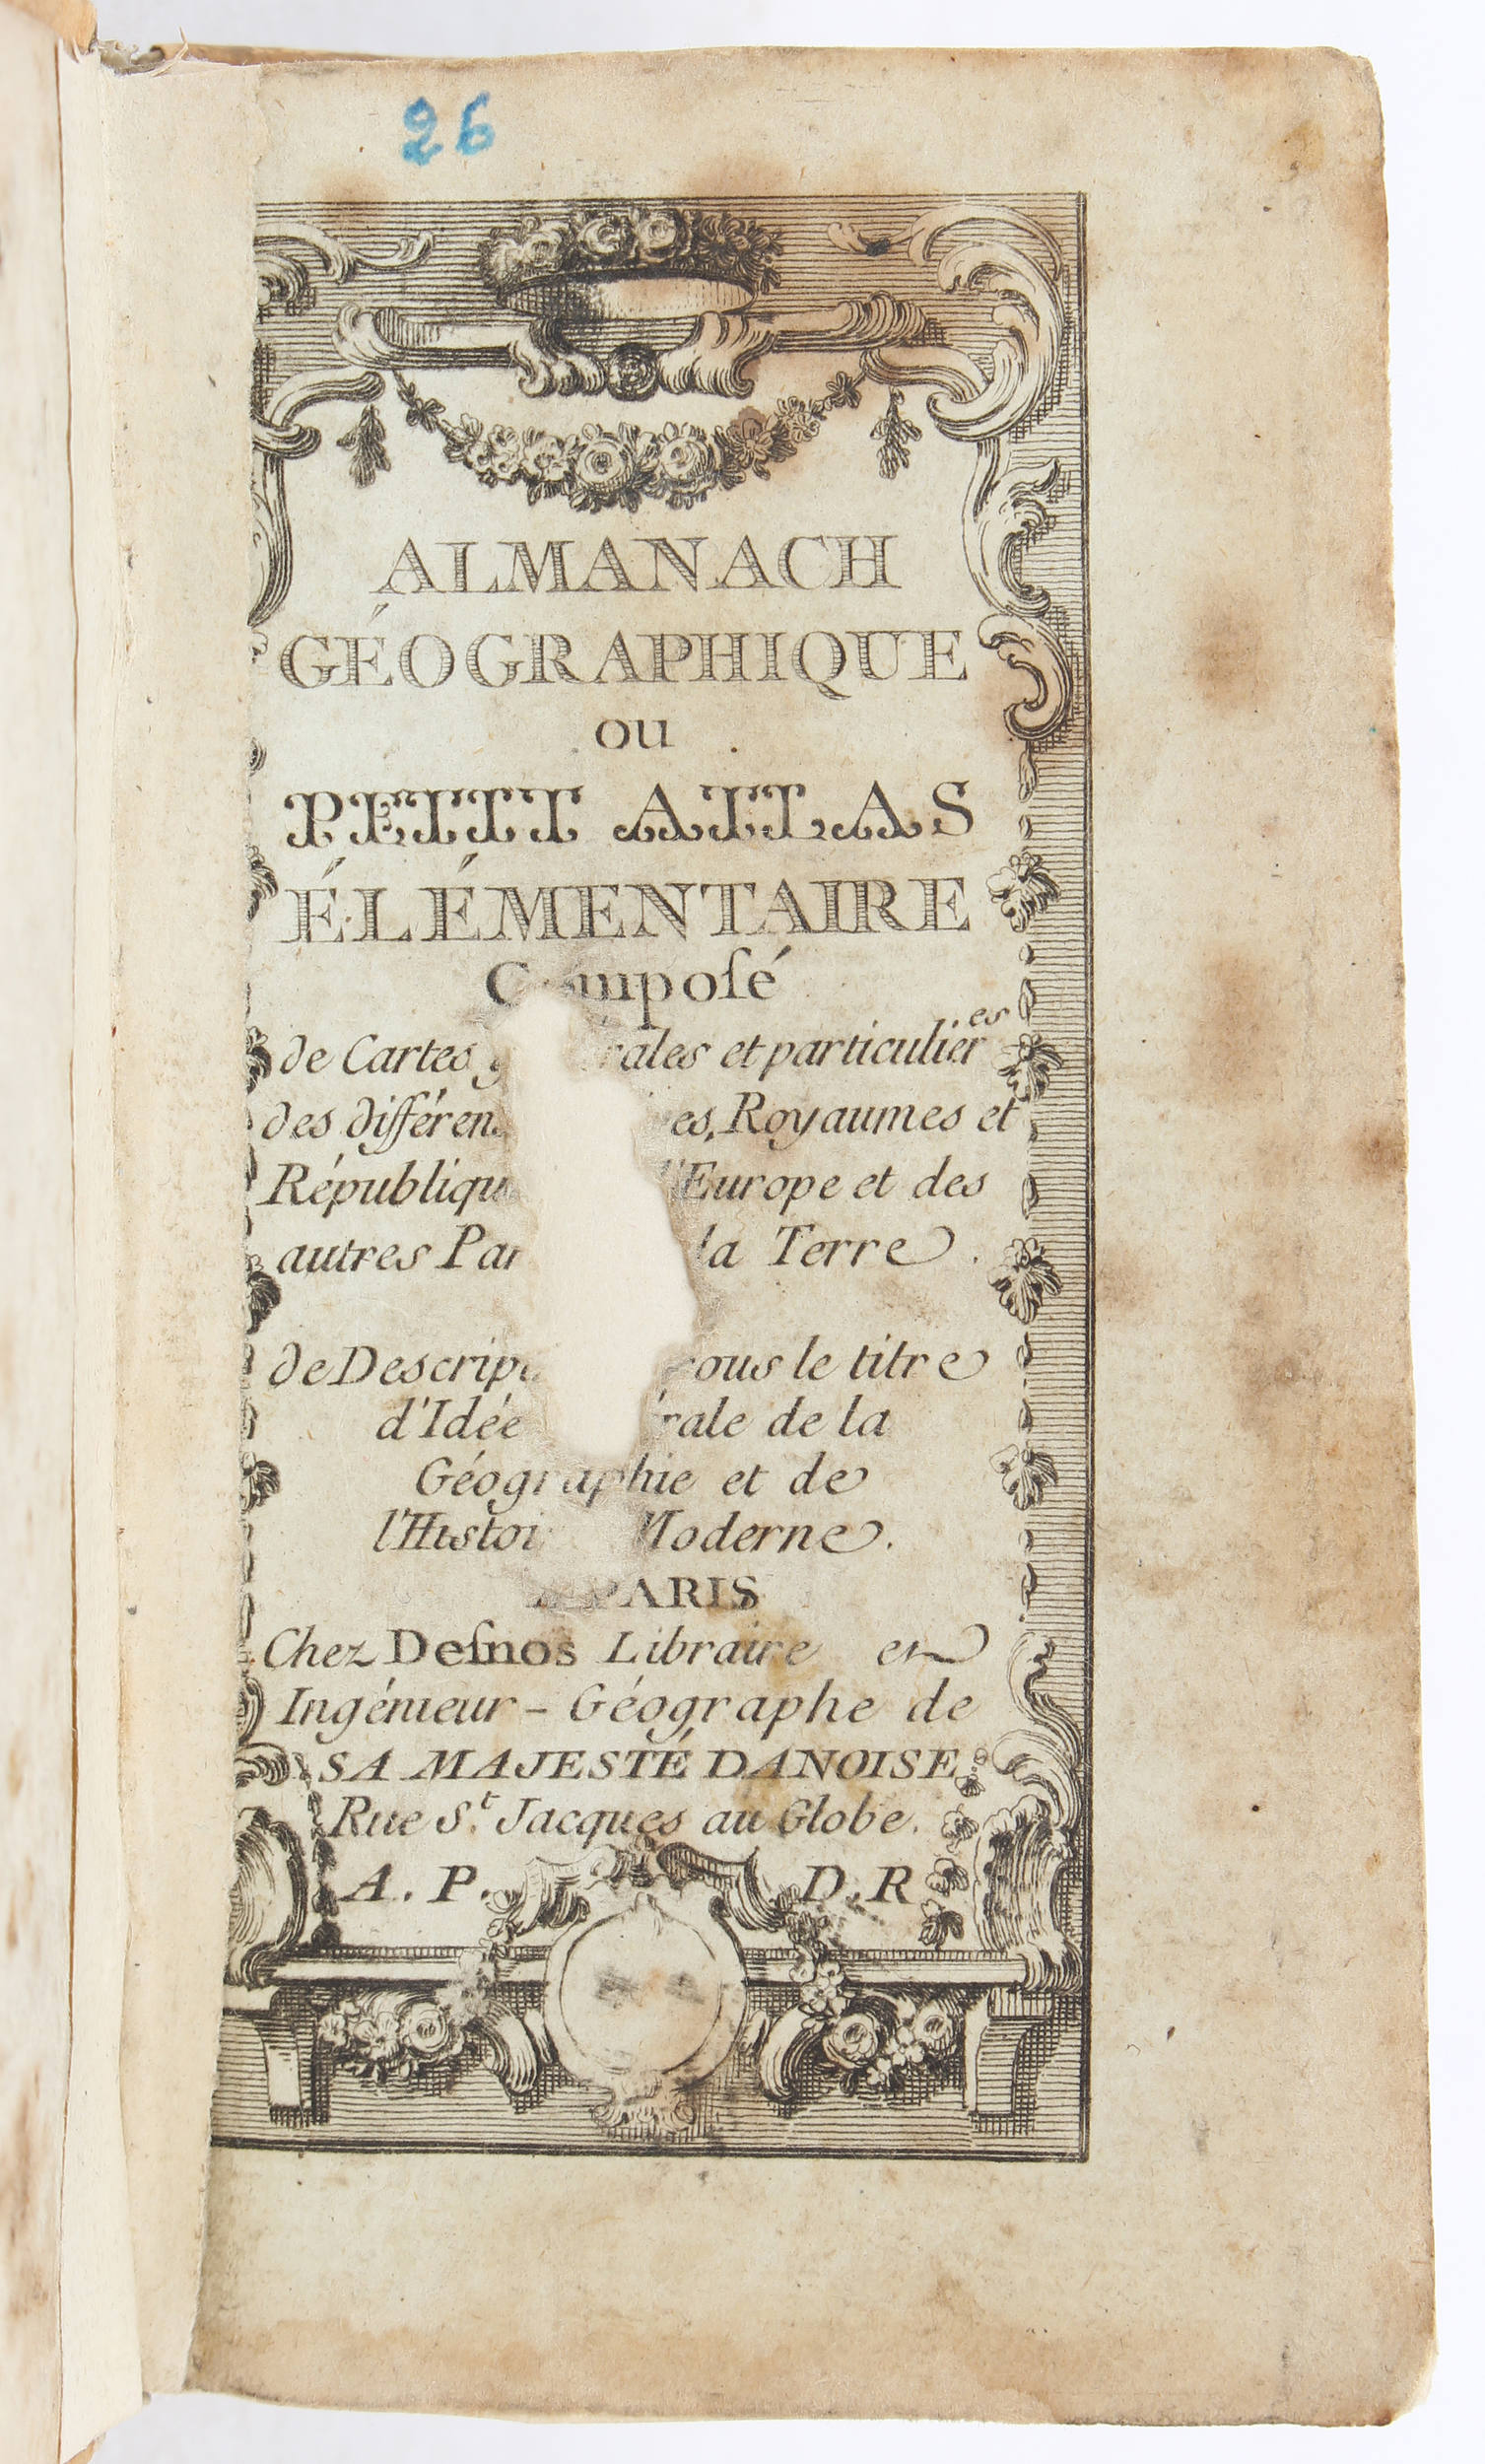 26
ALMANACH
GÉOGRAPHIQUE
ou
PETIT ATLAS
ÉLÉMENTAIRE
Composé
de Cartes et particulieres
des Royaumes et
l'Europe et des
autres la Terre.
de sous le titre
d'Idée de la
Géographie et de
Moderne.
A PARIS
Chez Desnos Libraire et
Ingénieur-Géographe de
SA MAJESTÉ DANOISE
Rue St. Jacques au Globe.
A. P. D. R